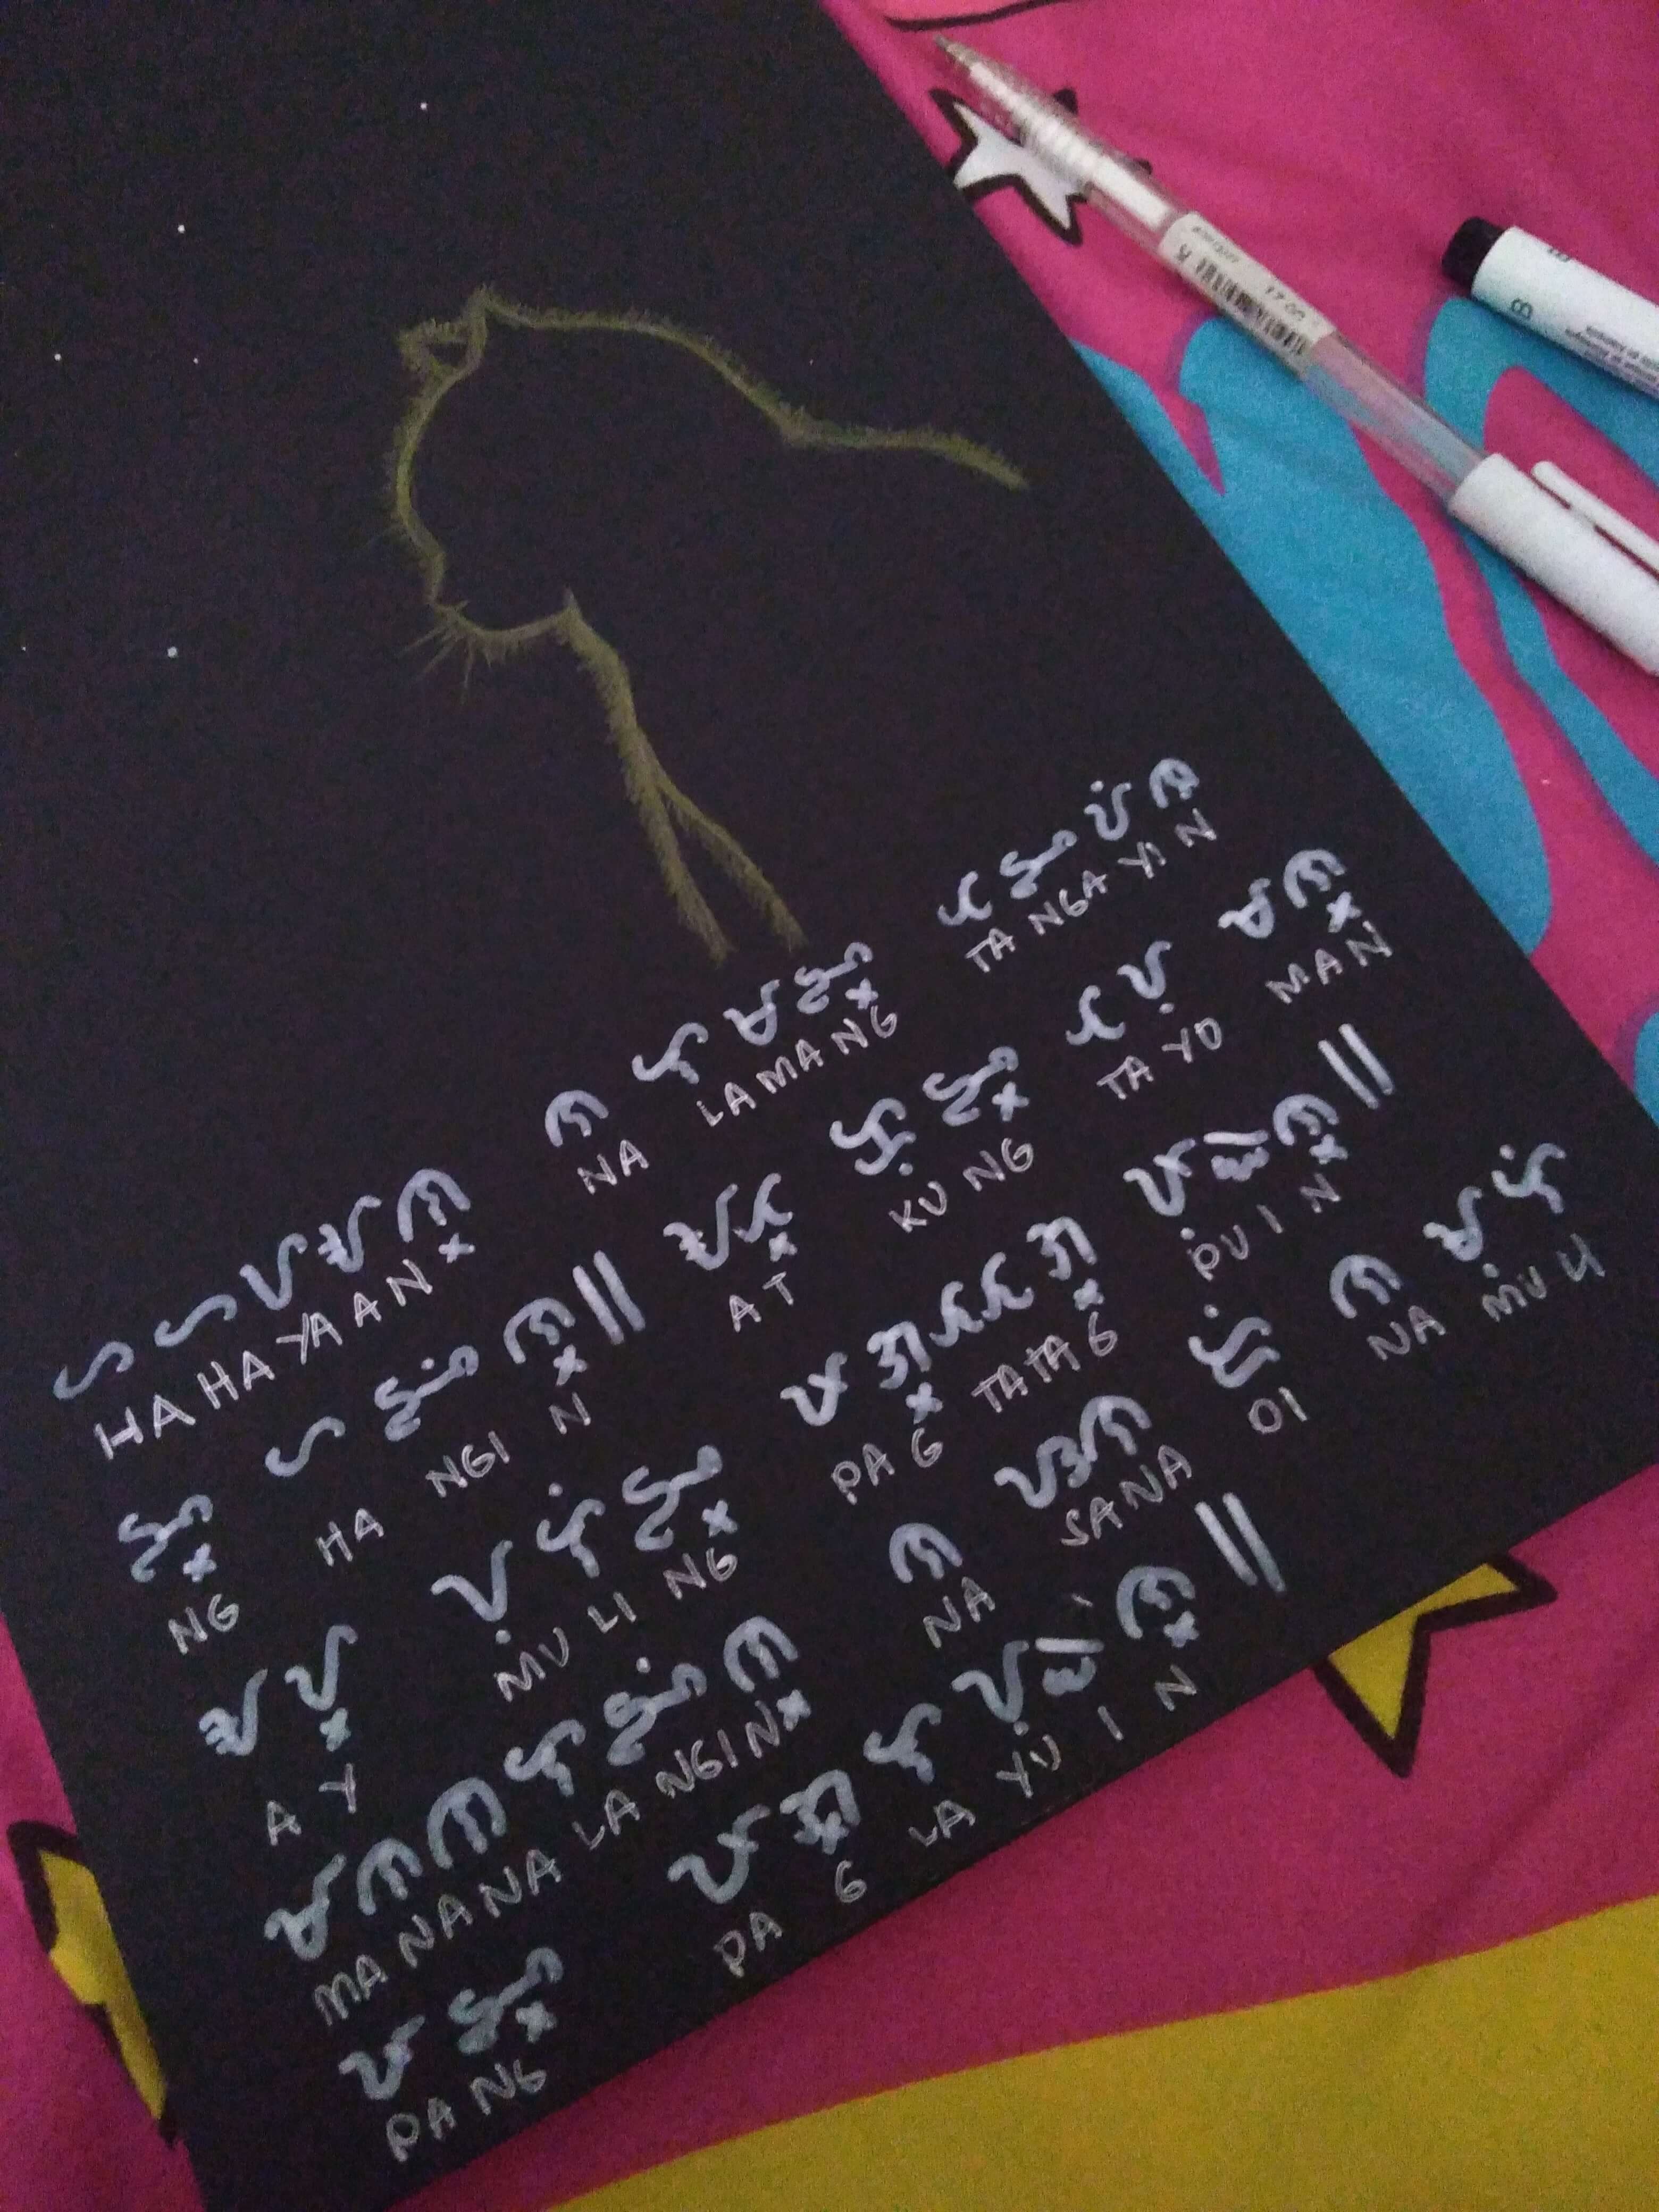 ᜑᜑᜌᜀᜈ᜔ ᜈ ᜎᜋᜅ᜔ ᜆᜅᜌᜒᜈ
HA HA YA A N NA LAMANG TA NGA YI N
ᜅ᜔ ᜑᜅᜒᜈ᜔ ᜶ ᜀᜆ᜔ ᜃᜓᜅ᜔ ᜆᜌᜓ ᜋᜈ᜔
NG HA NGI N AT KU NG TA YO MAN
ᜀᜌ᜔ ᜌᜓᜎᜒᜅ᜔ ᜉᜄ᜔ᜆᜆᜄ᜔ ᜉᜓᜁᜈ᜔ ᜶
A Y MU LI NG PA G TATAG PU I N
ᜋᜈᜈᜎᜅᜒᜈ᜔ ᜈ ᜐᜈ ᜈ ᜋᜓᜎᜒ
MA NA NA LA NGI N NA SANA OI NA MU LI
ᜉᜅ᜔ ᜉᜄ᜔ᜎᜌᜓᜁᜈ᜔ ᜶
PA NG PA G LA YU I N